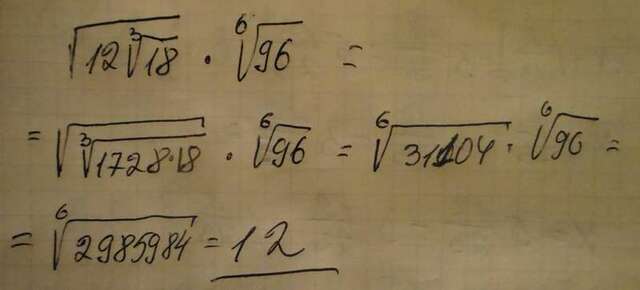 √(12∛18) · ⁶√96 =
= √(∛(1728·18)) · ⁶√96 = ⁶√31104 · ⁶√96 =
= ⁶√2985984 = 12